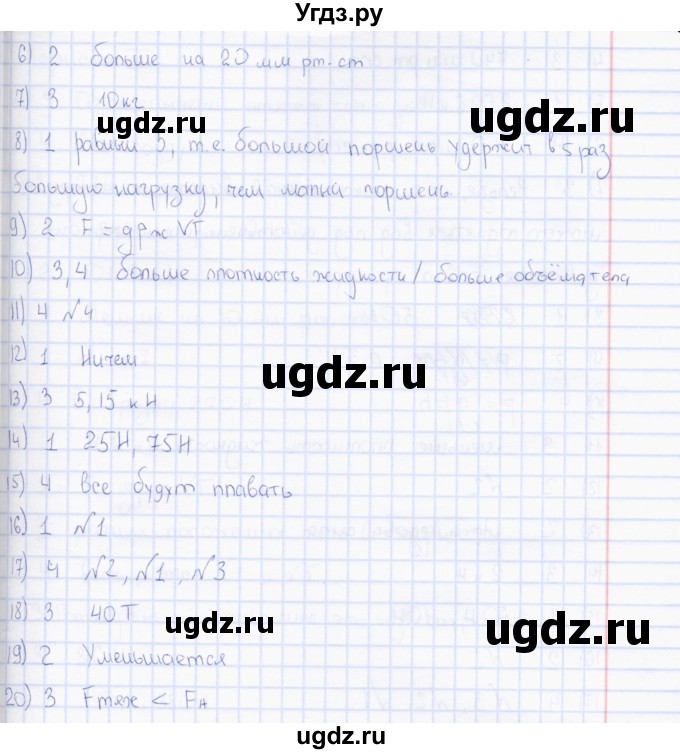 Угдз.ру
6) 2 больше на 20 мм рт. ст
7) 3 10кг
ugdz.ru ugdz.ru
8) 1 равный 5, т.е. большой поршень удержит в 5 раз
большую нагрузку, чем малый поршень.
9) 2 F = gρж Vт
10) 3,4 больше плотность жидкости / больше объёма тела
11) 4 №4
12) 1 Ничем
ugdz.ru ugdz.ru
13) 3 5,15 кН
14) 1 25Н, 75Н
15) 4 Все будут плавать
16) 1 №1
17) 4 №2, №1, №3
18) 3 40Т
ugdz.ru ugdz.ru
19) 2 Уменьшается
20) 3 Fтяж < FА
ugdz.ru ugdz.ru